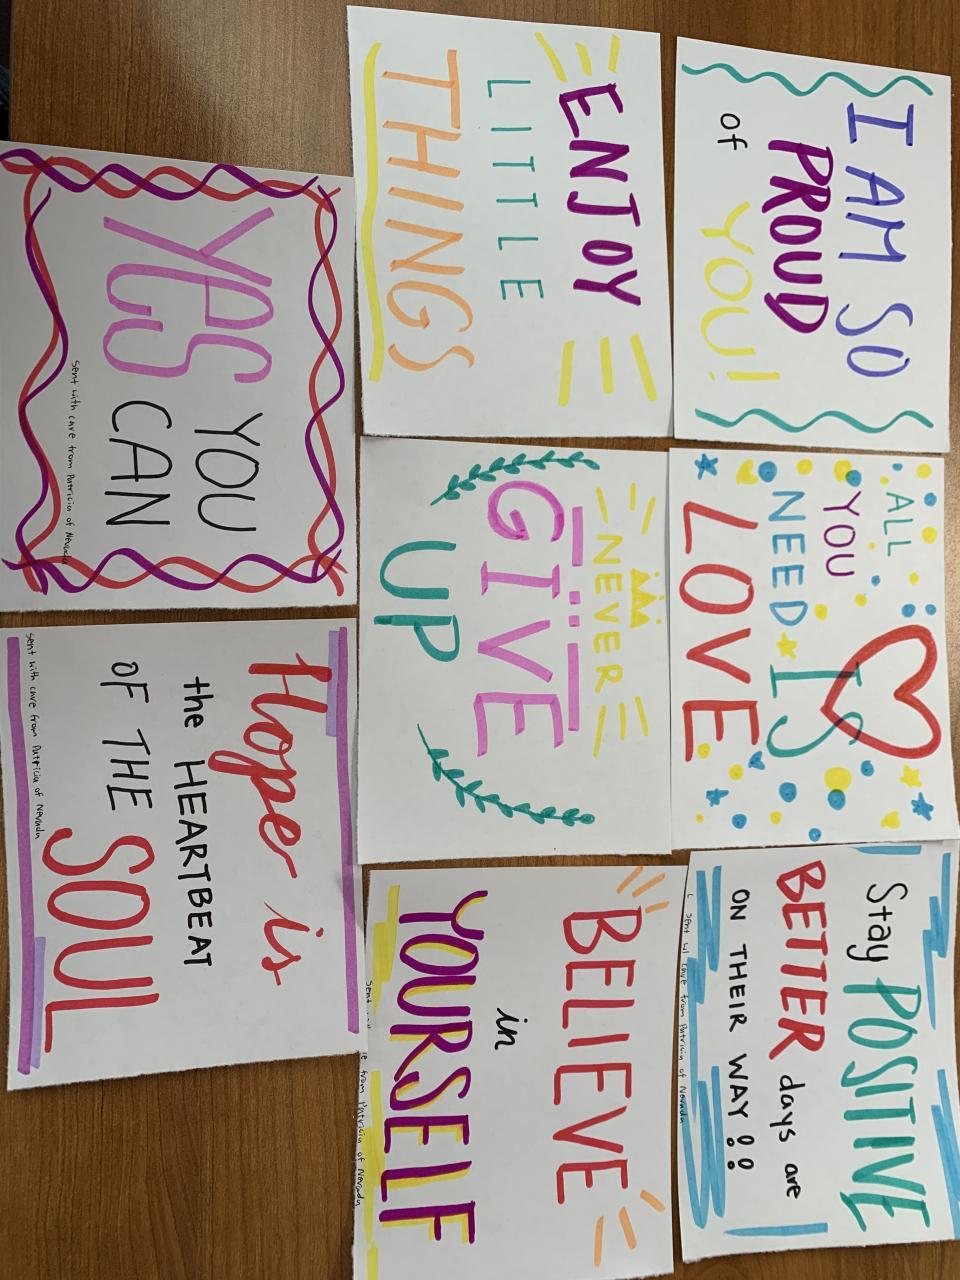 I AM SO
PROUD
of YOU!
ALL
YOU
NEED IS
LOVE
Stay POSITIVE
BETTER days are
ON THEIR WAY!!
sent w/ care from Patricia of Nevada
ENJOY
LITTLE
THINGS
NEVER
GIVE
UP
BELIEVE
in
YOURSELF
sent
from Patricia of Nevada
YES YOU
CAN
sent with care from Patricia of Nevada
Hope is
the HEARTBEAT
OF THE SOUL
sent with care from Patricia of Nevada